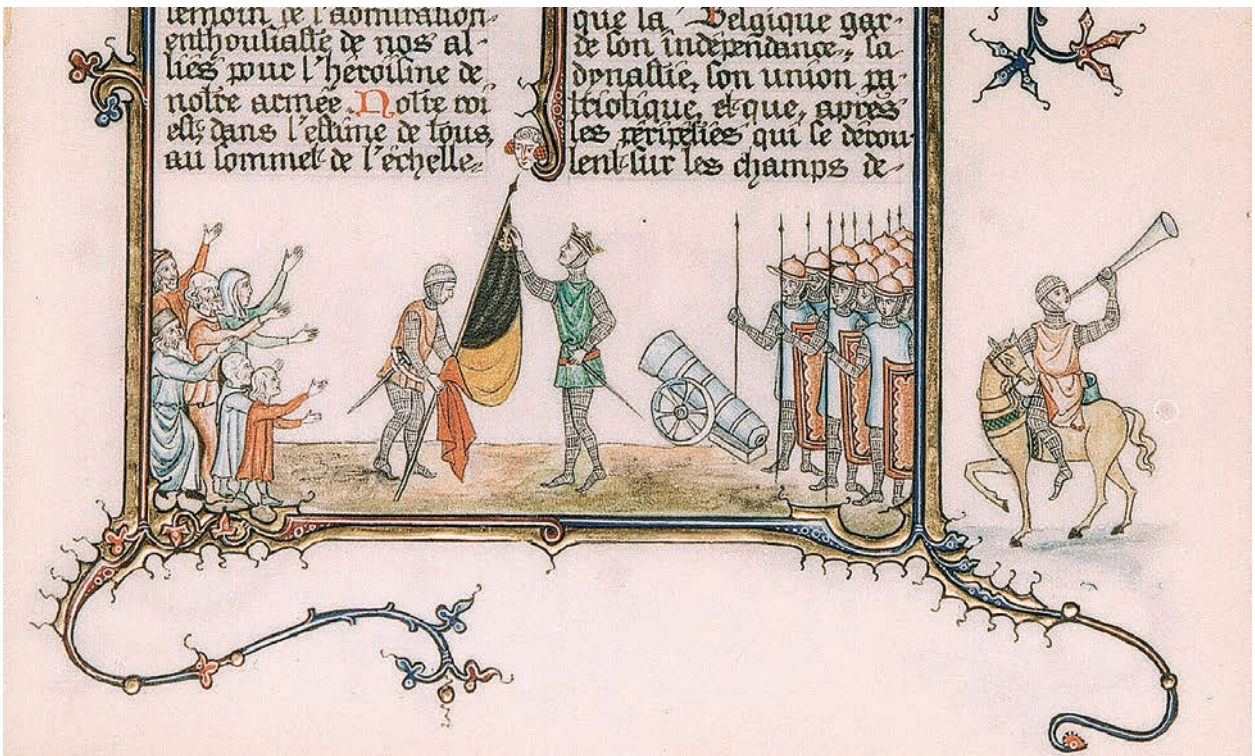 témoin de l'admiration
enthousiaste de nos al-
liés pour l'héroïsme de
notre armée. Notre roi
est, dans l'estime de tous,
au sommet de l'échelle
que la Belgique gar-
de son indépendance, sa
dynastie, son union pa-
triotique, et que, après
les péripéties qui se dérou
lent sur les champs de